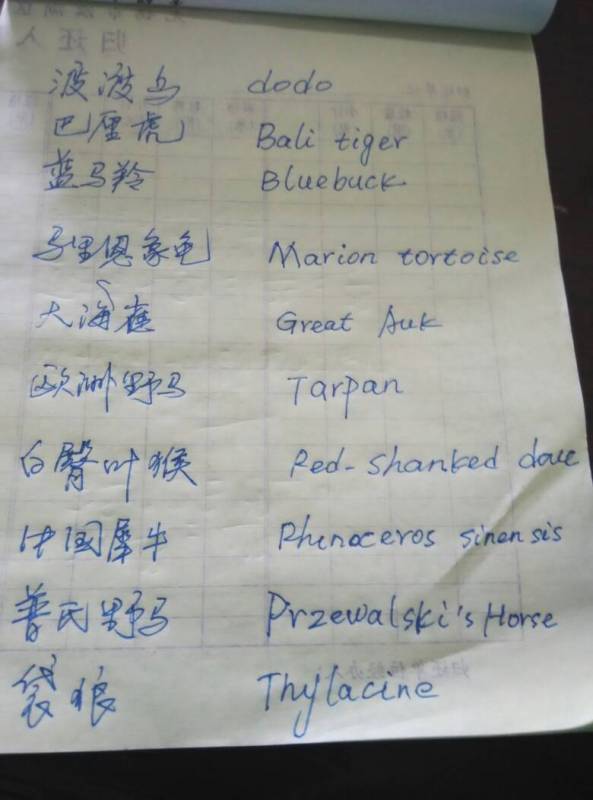 渡渡鸟 dodo
巴厘虎 Bali tiger
蓝马羚 Bluebuck
马里恩象龟 Marion tortoise
大海雀 Great Auk
欧洲野马 Tarpan
白臀叶猴 Red-shanked douc
中国犀牛 Rhinoceros sinensis
普氏野马 Przewalski's Horse
袋狼 Thylacine